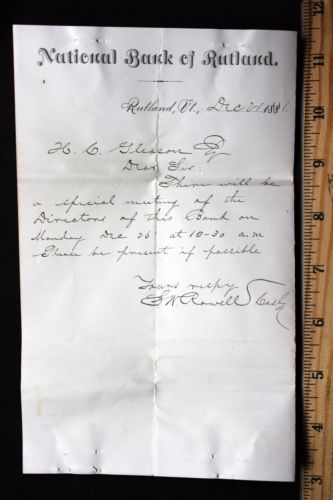 National Bank of Rutland.
Rutland, Vt., Dec 24 1881.
H. C. Gleason Esq
Dear Sir:
There will be
a special meeting of the
Directors of this Bank on
Monday Dec 26 at 10-30 a.m
Please be present if possible
Yours respy
S. W. Rowell Cash
12
11
10
9
8
7
6
5
4
3
2